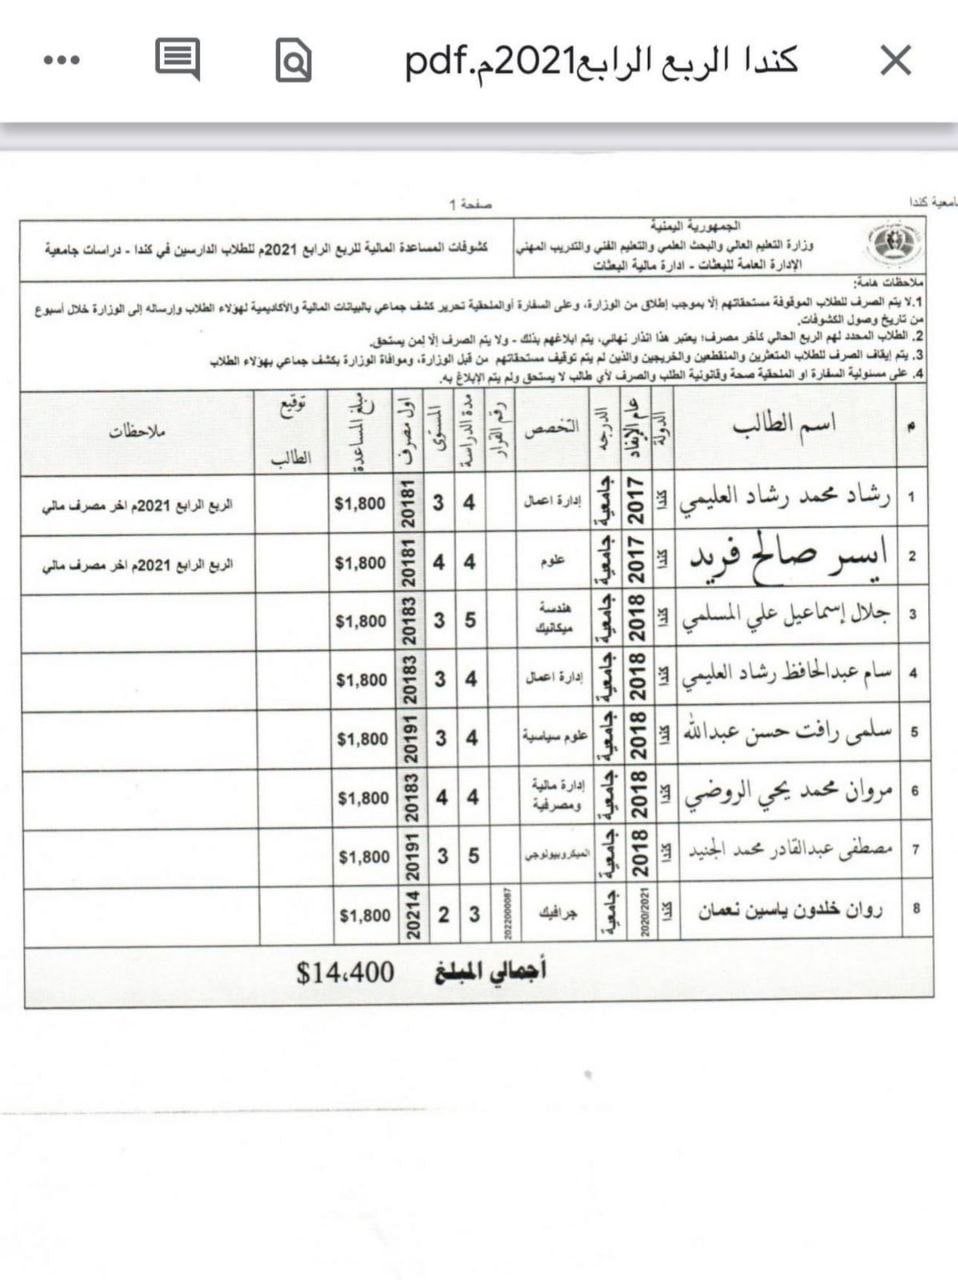 كندا الربع الرابع2021م.pdf
امعية كندا
صفحة 1
الجمهورية اليمنية
وزارة التعليم العالي والبحث العلمي والتعليم الفني والتدريب المهني
الإدارة العامة للبعثات - ادارة مالية البعثات
كشوفات المساعدة المالية للربع الرابع 2021م للطلاب الدارسين في كندا - دراسات جامعية
ملاحظات هامة:
1. لا يتم الصرف للطلاب الموقوفة مستحقاتهم إلا بموجب إطلاق من الوزارة، وعلى السفارة أوالملحقية تحرير كشف جماعي بالبيانات المالية والأكاديمية لهؤلاء الطلاب وإرساله إلى الوزارة خلال أسبوع
من تاريخ وصول الكشوفات.
2. الطلاب المحدد لهم الربع الحالي كأخر مصرف؛ يعتبر هذا انذار نهائي، يتم ابلاغهم بذلك - ولا يتم الصرف إلا لمن يستحق.
3. يتم إيقاف الصرف للطلاب المتعثرين والمنقطعين والخريجين والذين لم يتم توقيف مستحقاتهم من قبل الوزارة، وموافاة الوزارة بكشف جماعي بهؤلاء الطلاب
4. على مسئولية السفارة او الملحقية صحة وقانونية الطلب والصرف لأي طالب لا يستحق ولم يتم الإبلاغ به.
م اسم الطالب الدولة عام الإيفاد الدرجه التخصص رقم القرار مدة الدراسة المستوى اول مصرف مبلغ المساعدة توقيع الطالب ملاحظات
1 رشاد محمد رشاد العليمي كندا 2017 جامعية إدارة اعمال 4 3 20181 $1,800 الربع الرابع 2021م اخر مصرف مالي
2 ايسر صالح فريد كندا 2017 جامعية علوم 4 4 20181 $1,800 الربع الرابع 2021م اخر مصرف مالي
3 جلال إسماعيل علي المسلمي كندا 2018 جامعية هندسة ميكانيك 5 3 20183 $1,800
4 سام عبدالحافظ رشاد العليمي كندا 2018 جامعية إدارة اعمال 4 3 20183 $1,800
5 سلمى رافت حسن عبدالله كندا 2018 جامعية علوم سياسية 4 3 20191 $1,800
6 مروان محمد يحي الروضي كندا 2018 جامعية إدارة مالية ومصرفية 4 4 20183 $1,800
7 مصطفى عبدالقادر محمد الجنيد كندا 2018 جامعية الميكروبيولوجي 5 3 20191 $1,800
8 روان خلدون ياسين نعمان كندا 2020/2021 جامعية جرافيك 2022000087 3 2 20214 $1,800
أجمالي المبلغ $14،400